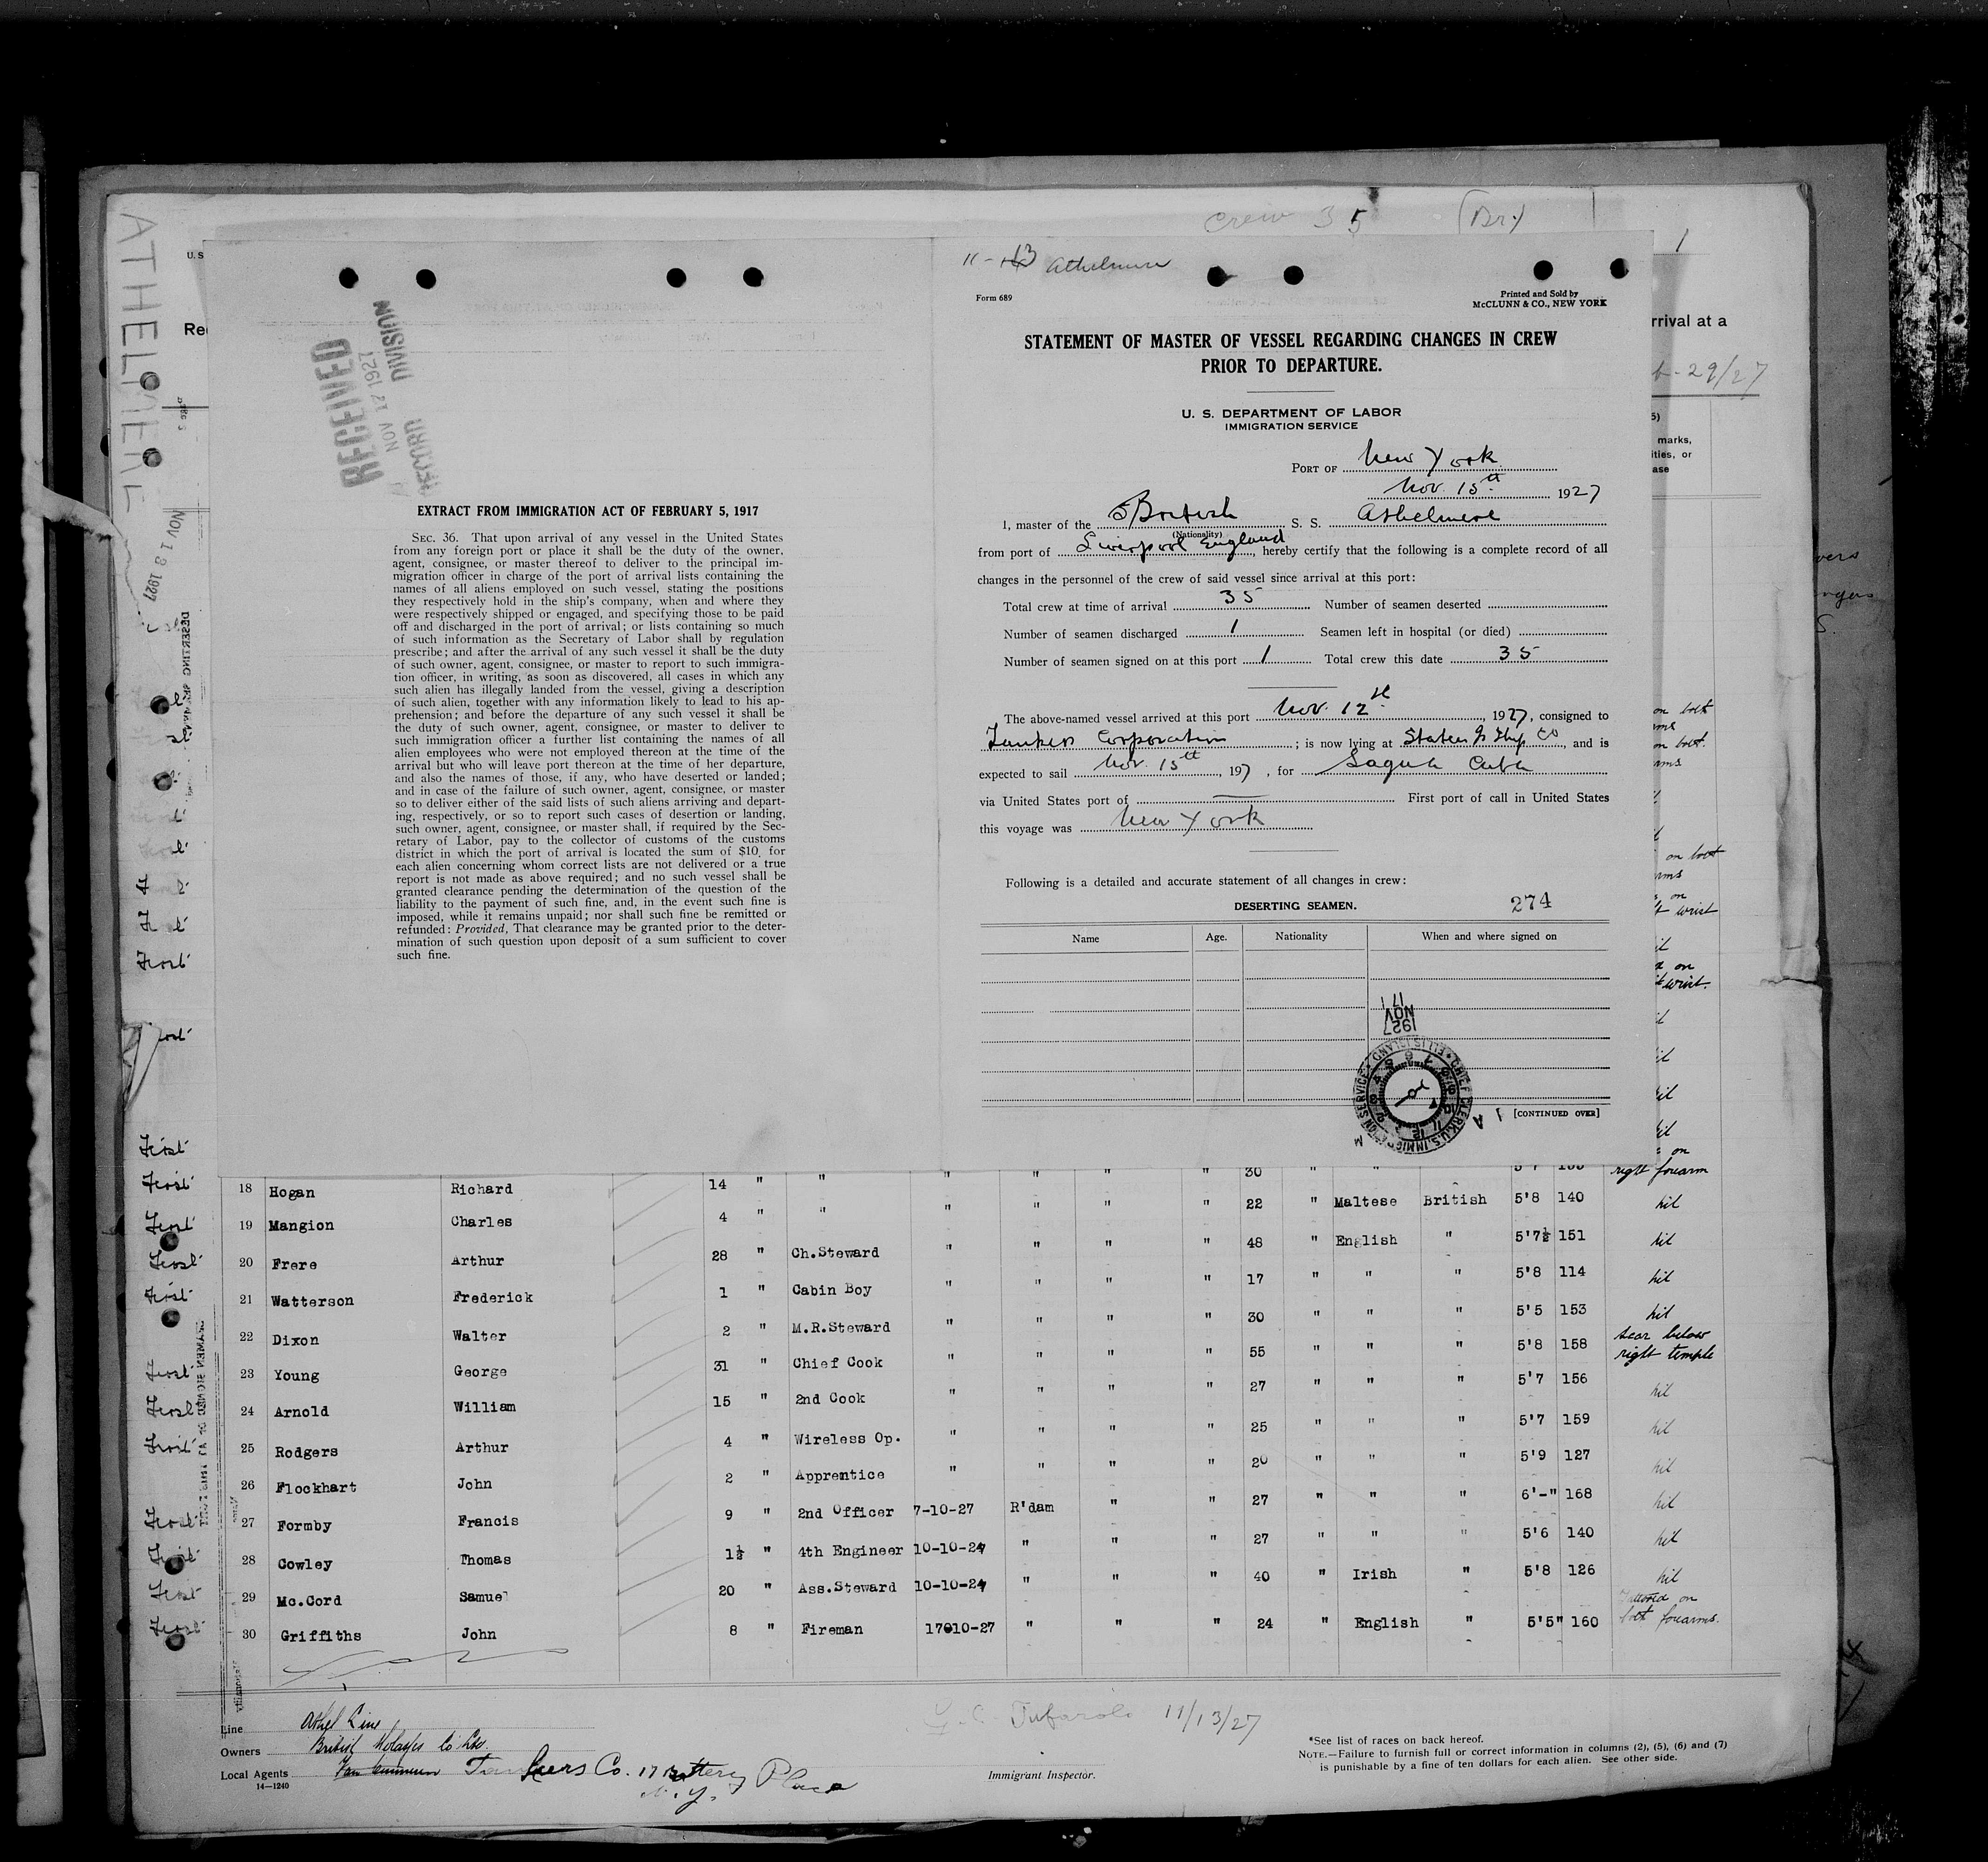 crew 35 (Br.)
ATHELMERE
U. S
Re
NOV 13 1927
RECEIVED
NOV 17 1927
RECORD DIVISION
EXTRACT FROM IMMIGRATION ACT OF FEBRUARY 5, 1917
SEC. 36. That upon arrival of any vessel in the United States
from any foreign port or place it shall be the duty of the owner,
agent, consignee, or master thereof to deliver to the principal im-
migration officer in charge of the port of arrival lists containing the
names of all aliens employed on such vessel, stating the positions
they respectively hold in the ship's company, when and where they
were respectively shipped or engaged, and specifying those to be paid
off and discharged in the port of arrival; or lists containing so much
of such information as the Secretary of Labor shall by regulation
prescribe; and after the arrival of any such vessel it shall be the duty
of such owner, agent, consignee, or master to report to such immigra-
tion officer, in writing, as soon as discovered, all cases in which any
such alien has illegally landed from the vessel, giving a description
of such alien, together with any information likely to lead to his ap-
prehension; and before the departure of any such vessel it shall be
the duty of such owner, agent, consignee, or master to deliver to
such immigration officer a further list containing the names of all
alien employees who were not employed thereon at the time of the
arrival but who will leave port thereon at the time of her departure,
and also the names of those, if any, who have deserted or landed;
and in case of the failure of such owner, agent, consignee, or master
so to deliver either of the said lists of such aliens arriving and depart-
ing, respectively, or so to report such cases of desertion or landing,
such owner, agent, consignee, or master shall, if required by the Sec-
retary of Labor, pay to the collector of customs of the customs
district in which the port of arrival is located the sum of $10 for
each alien concerning whom correct lists are not delivered or a true
report is not made as above required; and no such vessel shall be
granted clearance pending the determination of the question of the
liability to the payment of such fine, and, in the event such fine is
imposed, while it remains unpaid; nor shall such fine be remitted or
refunded: Provided, That clearance may be granted prior to the deter-
mination of such question upon deposit of a sum sufficient to cover
such fine.
11-13 Athelmere
Form 689
Printed and Sold by
McCLUNN & CO., NEW YORK
STATEMENT OF MASTER OF VESSEL REGARDING CHANGES IN CREW
PRIOR TO DEPARTURE.
U. S. DEPARTMENT OF LABOR
IMMIGRATION SERVICE
PORT OF New York
Nov. 15th 1927
I, master of the British S. S. Athelmere
(Nationality)
from port of Liverpool England, hereby certify that the following is a complete record of all
changes in the personnel of the crew of said vessel since arrival at this port:
Total crew at time of arrival 35 Number of seamen deserted
Number of seamen discharged 1 Seamen left in hospital (or died)
Number of seamen signed on at this port 1 Total crew this date 35
The above-named vessel arrived at this port Nov. 12th, 1927, consigned to
Tankers Corporation; is now lying at Staten Is Ship Co, and is
expected to sail Nov. 15th, 197, for Sagua Cuba
via United States port of First port of call in United States
this voyage was New York
Following is a detailed and accurate statement of all changes in crew:
DESERTING SEAMEN. 274
Name Age. Nationality When and where signed on
1927 NOV 17
CHIEF CLERK, U.S. IMMIGRATION SERVICE ELLIS ISLAND
[CONTINUED OVER]
rrival at a
29/27
marks,
ities, or
ase
right forearm
18 Hogan Richard 14 " " " " " " 30 " "
19 Mangion Charles 4 " " " " " " 22 " Maltese British 5'8 140 nil
20 Frere Arthur 28 " Ch.Steward " " " " 48 " English " 5'7½ 151 nil
21 Watterson Frederick 1 " Cabin Boy " " " " 17 " " " 5'8 114 nil
22 Dixon Walter 2 " M.R.Steward " " " " 30 " " " 5'5 153 nil
23 Young George 31 " Chief Cook " " " " 55 " " " 5'8 158 scar below right temple
24 Arnold William 15 " 2nd Cook " " " " 27 " " " 5'7 156 nil
25 Rodgers Arthur 4 " Wireless Op. " " " " 25 " " " 5'7 159 nil
26 Flockhart John 2 " Apprentice " " " " 20 " " " 5'9 127 nil
27 Formby Francis 9 " 2nd Officer 7-10-27 R'dam " " 27 " " " 6'-" 168 nil
28 Cowley Thomas 1½ " 4th Engineer 10-10-27 " " " 27 " " " 5'6 140 nil
29 Mc.Cord Samuel 20 " Ass.Steward 10-10-27 " " " 40 " Irish " 5'8 126 nil
30 Griffiths John 8 " Fireman 17010-27 " " " 24 " English " 5'5" 160 Tattooed on both forearms.
Line Athel Line
Owners British Molasses Co Ltd.
Local Agents Tankers Co. 17 Battery Place
N. Y.
14—1240
11/13/27
Immigrant Inspector.
*See list of races on back hereof.
NOTE.—Failure to furnish full or correct information in columns (2), (5), (6) and (7)
is punishable by a fine of ten dollars for each alien. See other side.